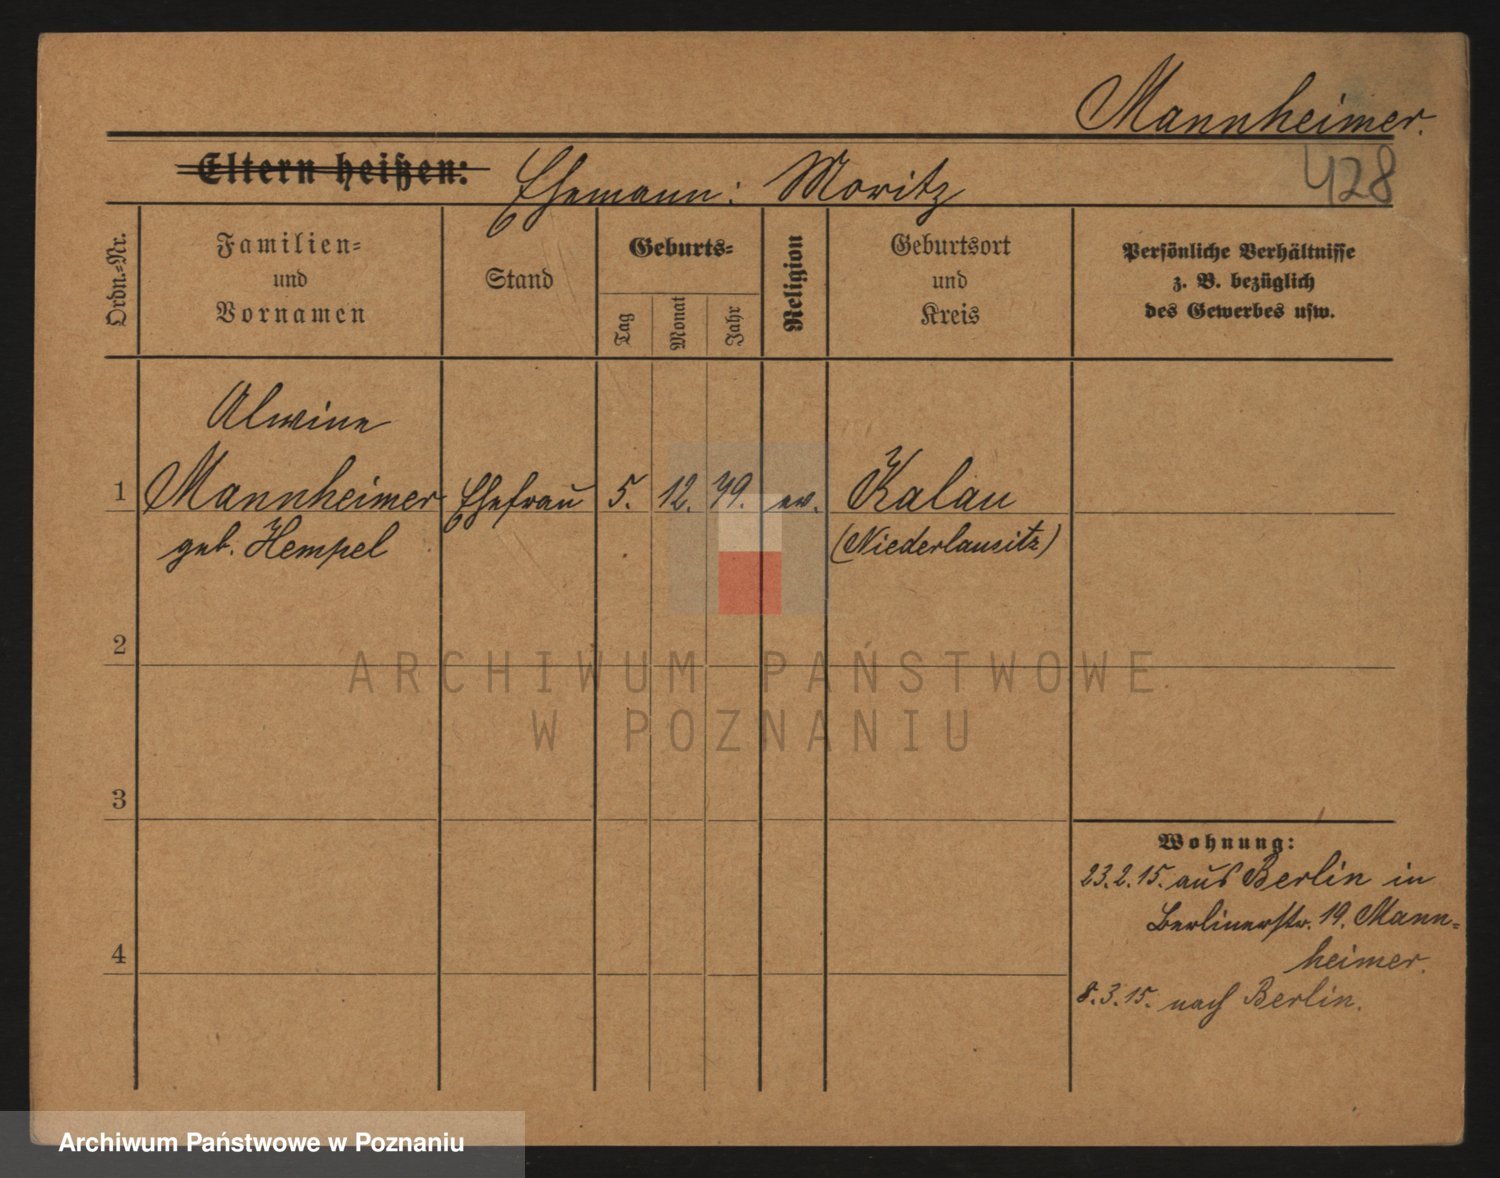 Mannheimer.
428
Eltern heißen: Ehemann: Moritz
Ordn.-Nr.
Familien-
und
Vornamen
Stand
Geburts-
Tag
Monat
Jahr
Religion
Geburtsort
und
Kreis
Persönliche Verhältnisse
z. B. bezüglich
des Gewerbes usw.
Alwine
1 Mannheimer Ehefrau 5. 12. 79. ev. Kalau
geb. Hempel (Niederlausitz)
2
3
4
Wohnung:
23.2.15. aus Berlin in
Berlinerstr. 19. Mann-
heimer.
8.3.15. nach Berlin.
ARCHIWUM PAŃSTWOWE
W POZNANIU
Archiwum Państwowe w Poznaniu